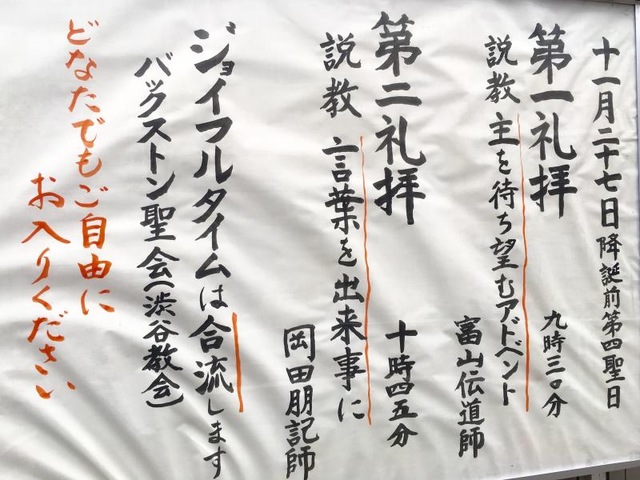 十一月二十七日 降誕前第四聖日
第一礼拝 九時三〇分
説教 主を待ち望むアドベント
富山伝道師
第二礼拝 十時四五分
説教 言葉を出来事に
岡田朋記師
ジョイフルタイムは合流します
バックストン聖会(渋谷教会)
どなたでもご自由に
お入りください